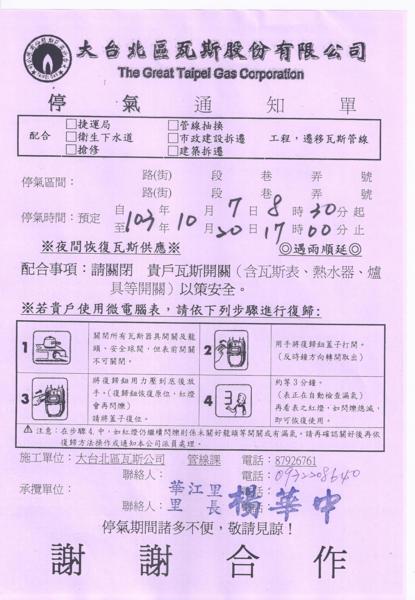 大台北區瓦斯股份有限公司
The Great Taipei Gas Corporation
停氣通知單
配合 □捷運局 □衛生下水道 □搶修 □管線抽換 □市政建設拆遷 □建築拆遷 工程,遷移瓦斯管線
停氣區間: 路(街) 段 巷 弄 號
路(街) 段 巷 弄 號
停氣時間:預定 自 103年10月7日8時30分起
至 20日17時00分止
※夜間恢復瓦斯供應※ ◎遇雨順延◎
配合事項:請關閉 貴戶瓦斯開關(含瓦斯表、熱水器、爐
具等開關)以策安全。
※若貴戶使用微電腦表,請依下列步驟進行復歸:
1 關閉所有瓦斯器具開關及龍
頭、安全球閥,但表前開關
不可關閉。
2 用手將復歸鈕蓋子打開。
(反時鐘方向轉開取出)
3 將復歸鈕用力壓到底後放
手。(復歸鈕恢復原位,紅燈
會再閃爍)
請將蓋子復位。
4 約等3分鐘。
(表正在自動檢查漏氣)
再看表之紅燈,如閃爍熄滅,
即可恢復使用。
⚠注意:在步驟4.中,如紅燈仍繼續閃爍則係未關好龍頭等開關或有漏氣,請再確認關好後再依
復歸方法操作或通知本公司派員處理。
施工單位:大台北區瓦斯公司 管線課 電話:87926761
聯絡人: 電話:0932208640
承攬單位: 電話:
華江里
里長 楊華中
聯絡人: 電話:
停氣期間諸多不便,敬請見諒!
謝謝合作